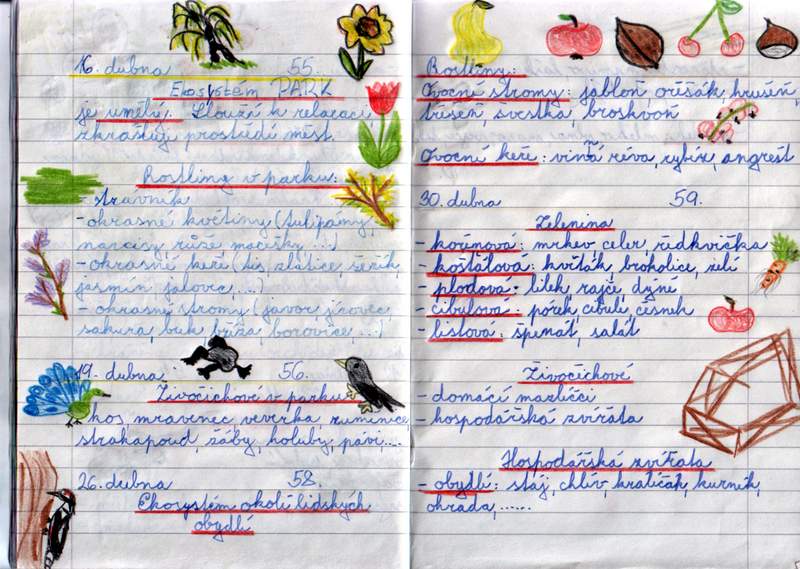 16. dubna 55.
Ekosystém PARK
je umělý. Slouží k relaxaci,
zkrašluje prostředí měst.
Rostliny v parku:
- trávník
- okrasné květiny (tulipány,
narcisy růže macešky ...)
- okrasné keře (tis, zlatice, šeřík,
jasmín jalovec, ...)
- okrasné stromy (javor, jírovec,
sakura, buk bříza, borovice ...)
19. dubna 56.
Živočichové v parku
kos, mravenec, veverka,
strakapoud, žáby, holubi, pávi....
26. dubna 58.
Ekosystém okolí lidských
obydlí
Rostliny:
Ovocné stromy: jabloň, ořešák, hrušeň,
třešeň, švestka, broskvoň
Ovocné keře: vinná réva, rybíz, angrešt
30. dubna 59.
Zelenina
- kořenová: mrkev celer ředkvička
- košťálová: květák, brokolice, zelí
- plodová: lilek, rajče, dýně
- cibulová: pórek, cibule, česnek
- listová: špenát, salát
Živočichové
- domácí mazlíčci
- hospodářská zvířata
Hospodářská zvířata
- obydlí: stáj, chlív, kurník,
ohrada, ......